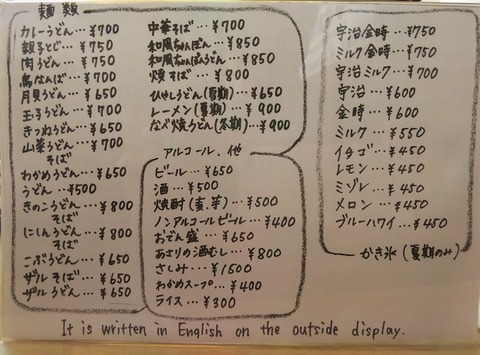 麺類
カレーうどん…¥700
親子とじ…¥750
肉うどん…¥750
鳥なんば…¥700
月見うどん…¥650
玉子うどん…¥700
きつねうどん…¥650
山菜うどん…¥700
そば
わかめうどん…¥650
うどん…¥500
きのこうどん…¥800
そば
にしんうどん…¥800
そば
こぶうどん…¥650
ザルそば…¥650
ザルうどん…¥650
中華そば…¥700
和風ちゃんぽん…¥850
和風ちゃんぽんうどん…¥850
焼そば…¥800
ひやしうどん(夏期)…¥650
レーメン(夏期)…¥900
なべ焼うどん(冬期)…¥900
アルコール、他
ビール…¥650
酒…¥500
焼酎(麦、芋)…¥500
ノンアルコールビール…¥400
おでん盛…¥650
あさりの酒むし…¥800
さしみ…¥1500
わかめスープ…¥400
ライス…¥300
宇治金時…¥750
ミルク金時…¥750
宇治ミルク…¥700
宇治…¥600
金時…¥600
ミルク…¥550
イチゴ…¥450
レモン…¥450
ミゾレ…¥450
メロン…¥450
ブルーハワイ…¥450
かき氷(夏期のみ)
It is written in English on the outside display.